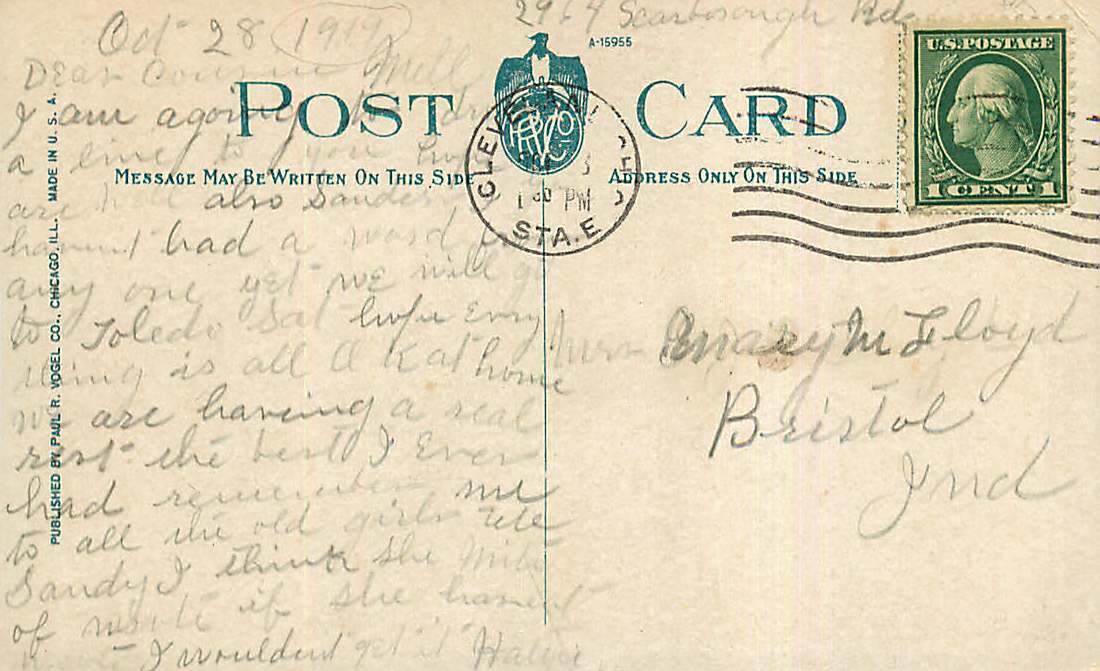 2964 Scarborough Rd
Oct 28 1919
Dear Cousin Mell
I am agoing to
a line to you
are well also Sanders
havunt had a word
any one yet we will go
to Toledo Sat hope Evry
thing is all O K at home
we are having a real
rest the best I Ever
had remember me
to all the old girls tell
Sandy I think she
of wrote if she havent
I wouldent get it
POST CARD
A-15955
MESSAGE MAY BE WRITTEN ON THIS SIDE
ADDRESS ONLY ON THIS SIDE
PUBLISHED BY PAUL R. VOGEL CO., CHICAGO, ILL. MADE IN U. S. A.
CLEVELAND, OHIO
1 30 PM
STA. E
U.S. POSTAGE
1 CENT 1
Mrs Mary M Floyd
Bristol
Ind